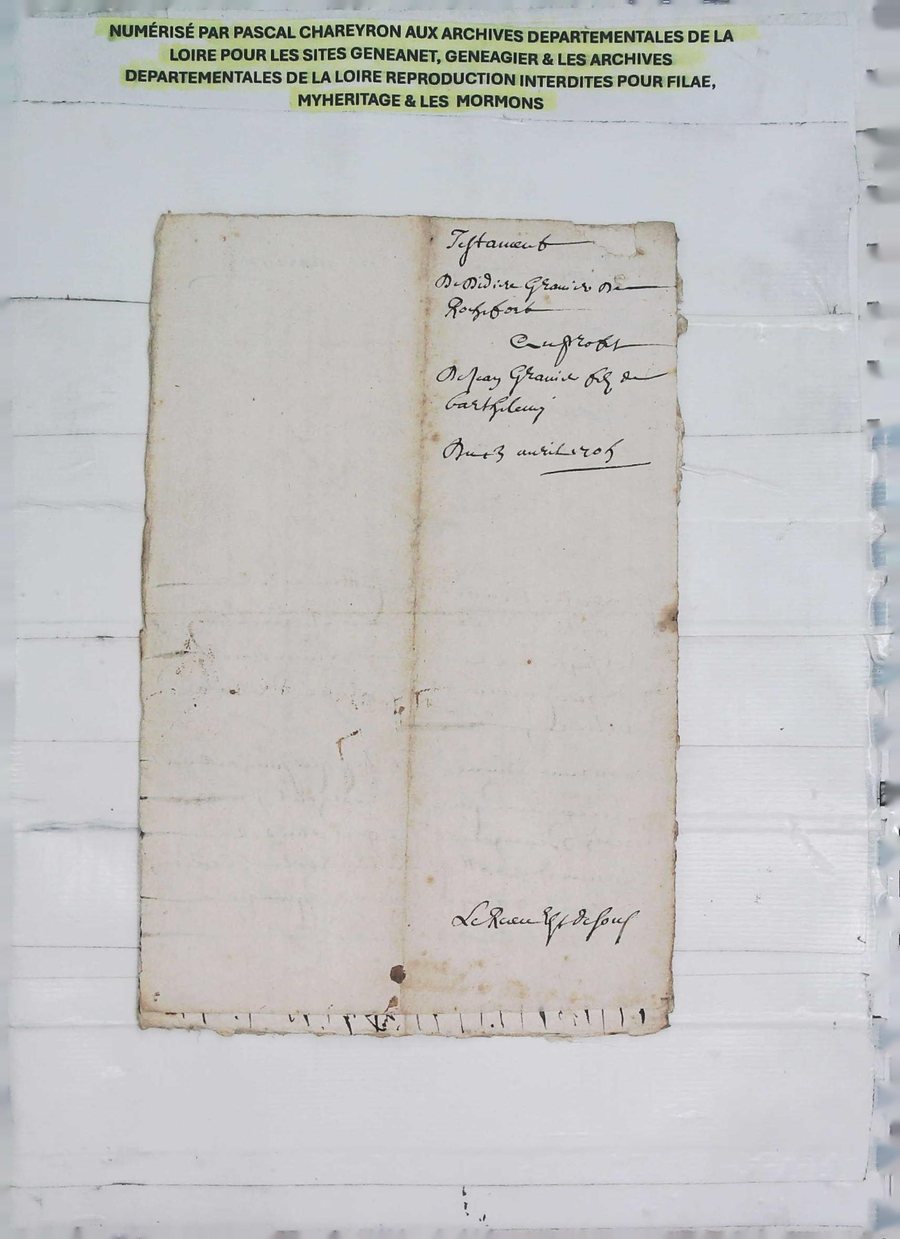 NUMÉRISÉ PAR PASCAL CHAREYRON AUX ARCHIVES DEPARTEMENTALES DE LA
LOIRE POUR LES SITES GENEANET, GENEAGIER & LES ARCHIVES
DEPARTEMENTALES DE LA LOIRE REPRODUCTION INTERDITES POUR FILAE,
MYHERITAGE & LES MORMONS
Testament
De Didier Granier De
Rochefort
Au profit
De Jean Granier filz de
barthelemi
Du avril
Le Receu Est de sous